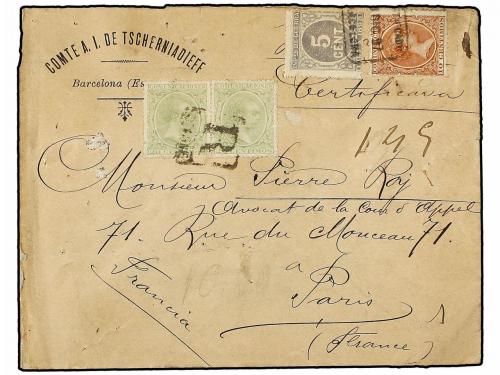 COMTE A. I. DE TSCHERNIADIEFF
Barcelona (Es
5
CENT
Certificada
R
Monsieur Pierre Roy
Avocat de la Cour d'Appel
71. Rue du Monceau 71.
a
Paris
(France)
Francia